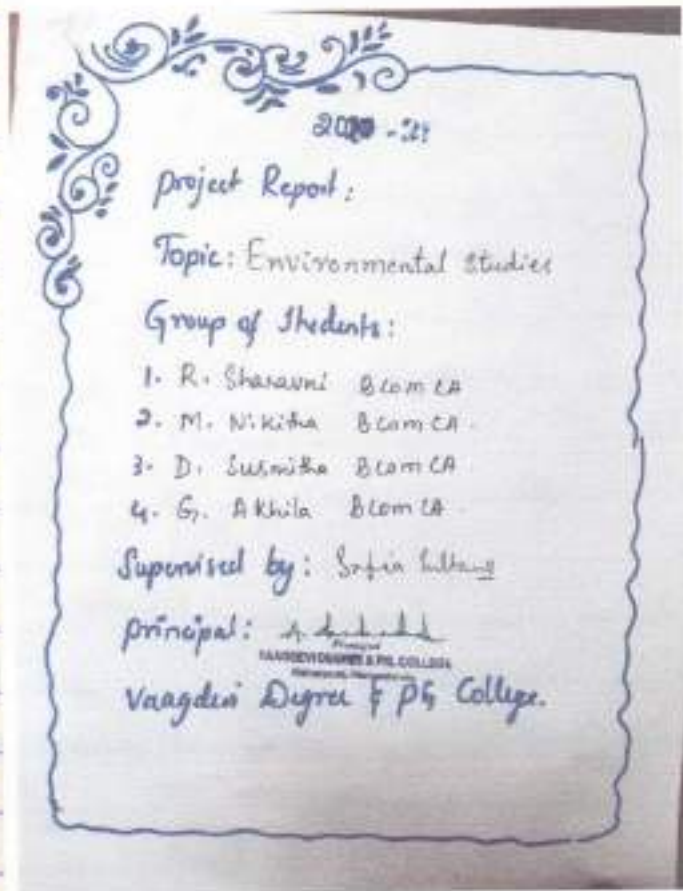 project Report:
Topic: Environmental Studies
Group of Students:
1. R. Sharavni BCom CA
2. M. Nikitha BCom CA.
3. D. Susmitha BCom CA
4. G. Akhila BCom CA.
Supervised by: Safia Sultana
principal:
Principal
VAAGDEVI DEGREE & P.G. COLLEGE
Vaagdevi Degree & PG College.